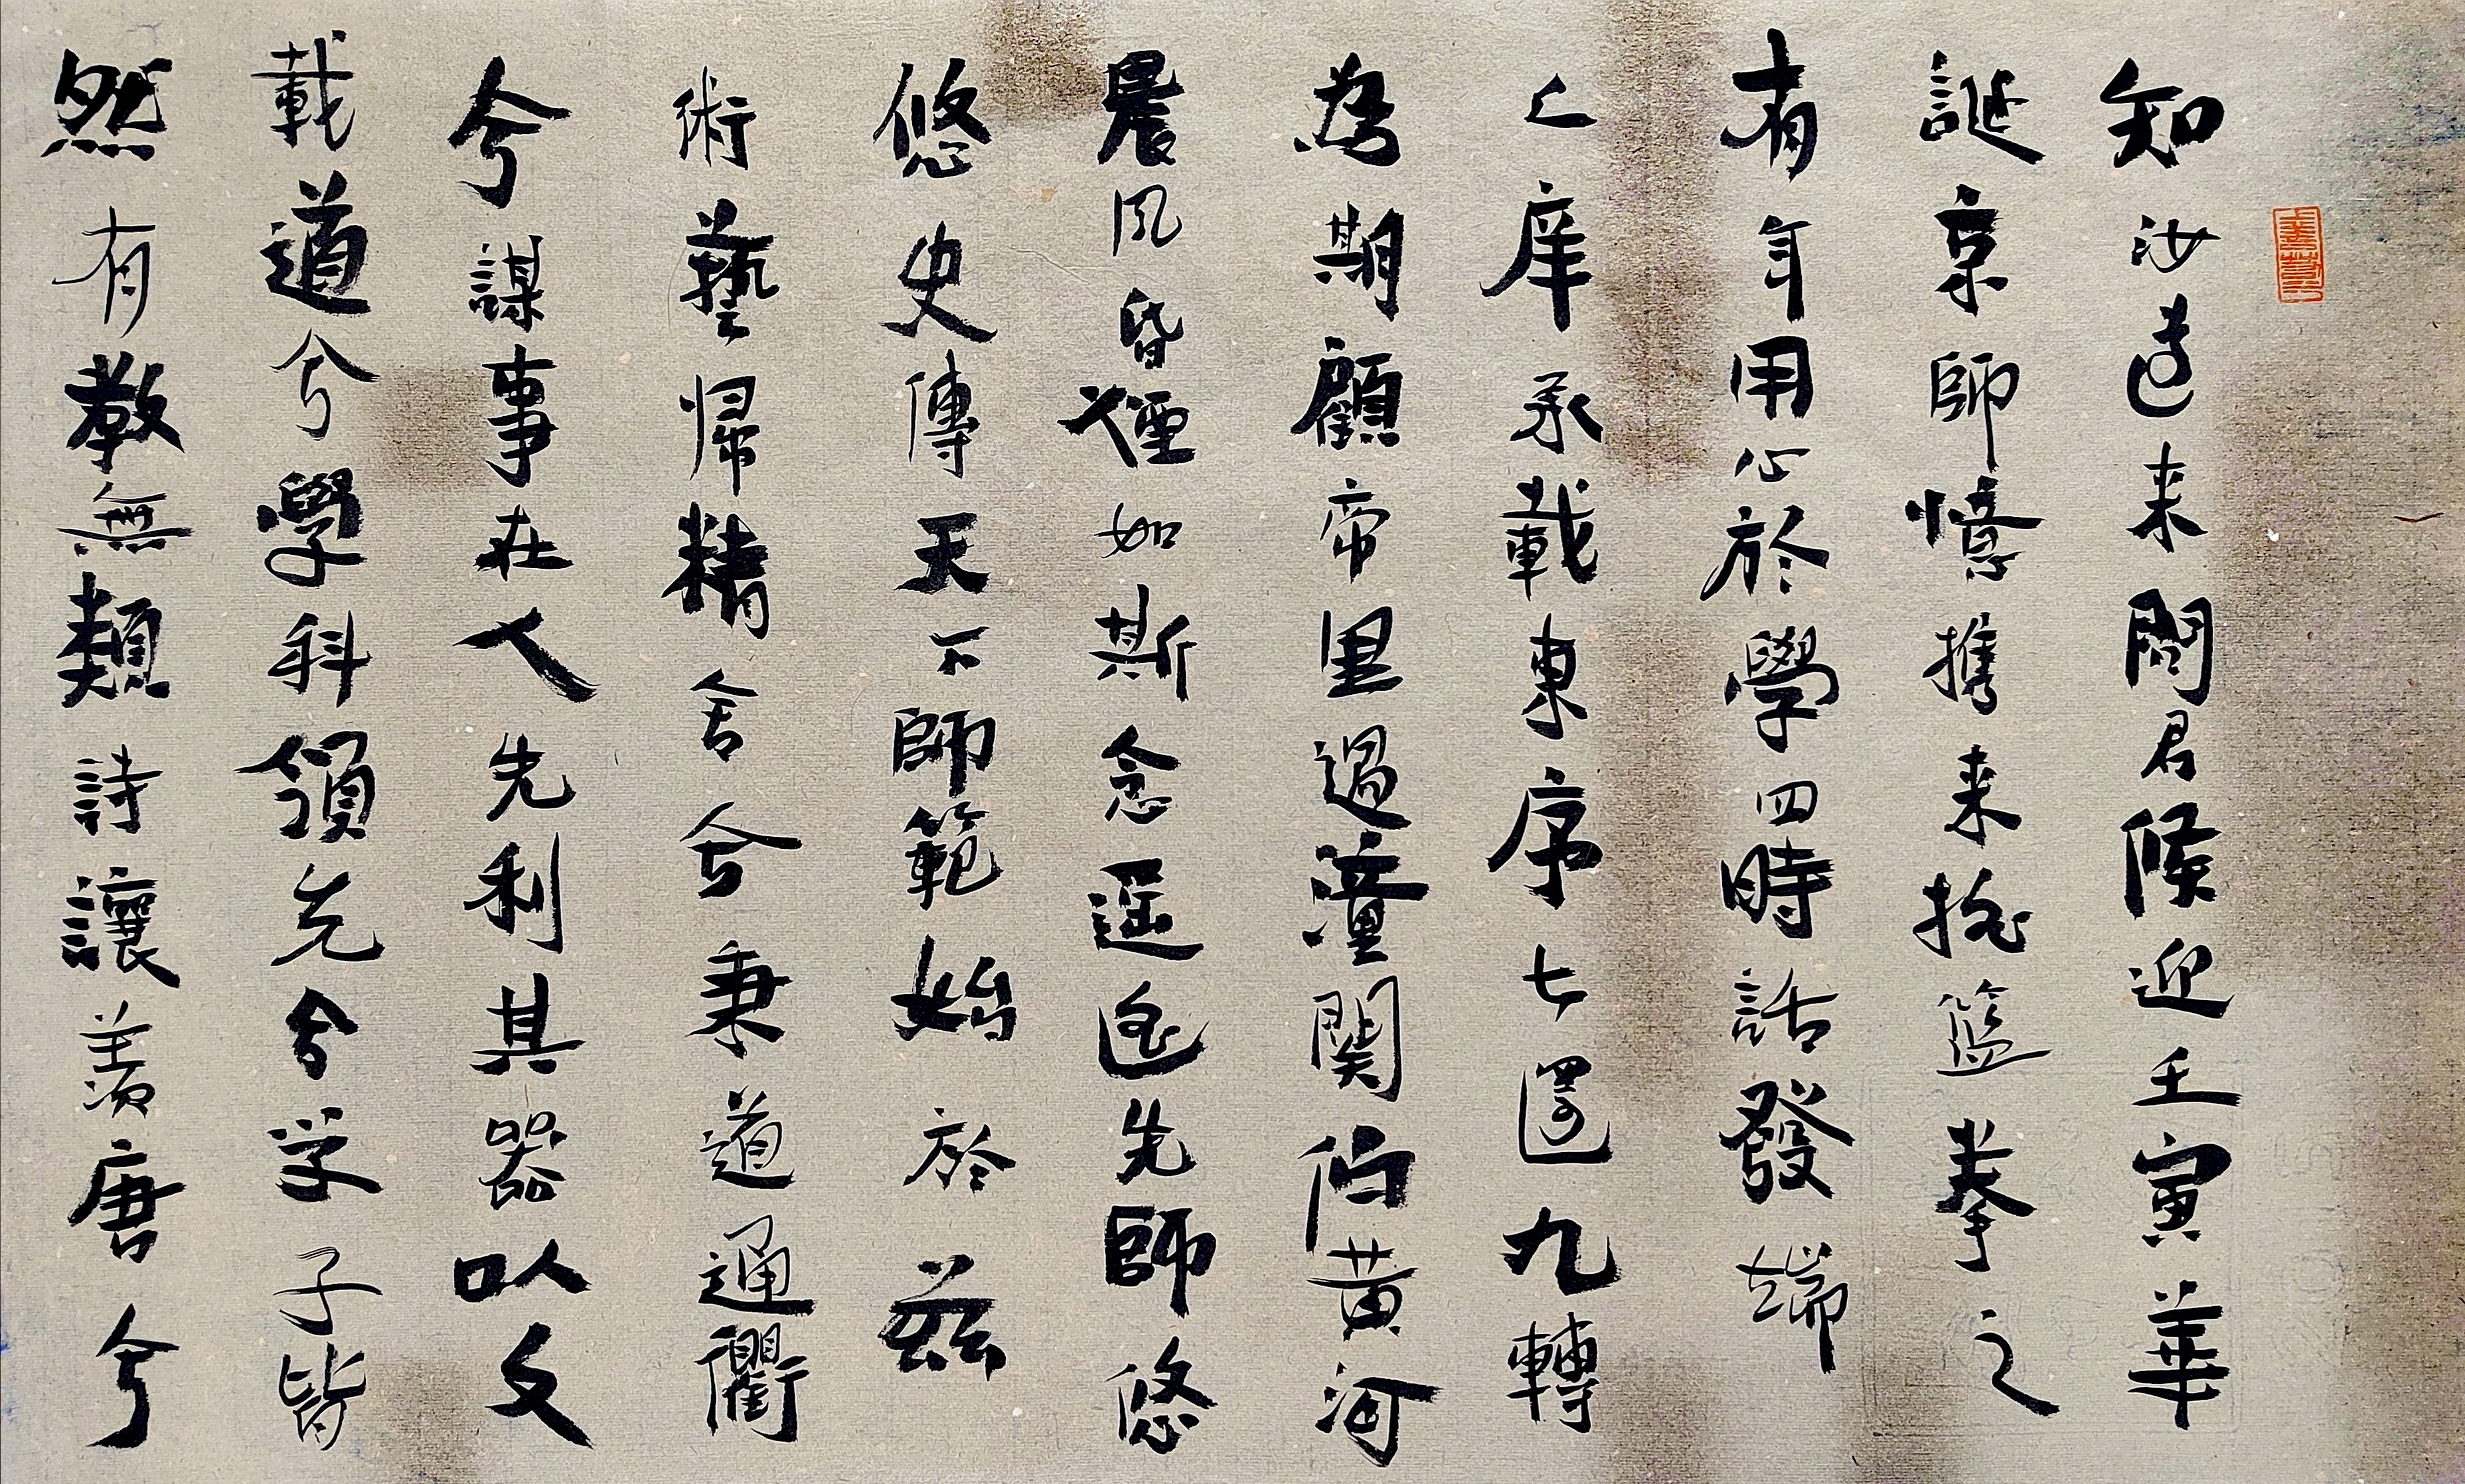 知汝遠来問君候迎壬寅華
誕京師憶攜来挽籃拳之
有年用心於學四時話發端
之庠承載東序七還九轉
為期顧帝里過潼關佇黃河
晨風昏煙如斯念遥遥先師悠
悠史傳天下師範始於茲
術藝歸精舍兮秉道通衢
兮謀事在人先利其器以文
載道兮學科領先兮学子皆
然有教無類詩讓羨唐兮